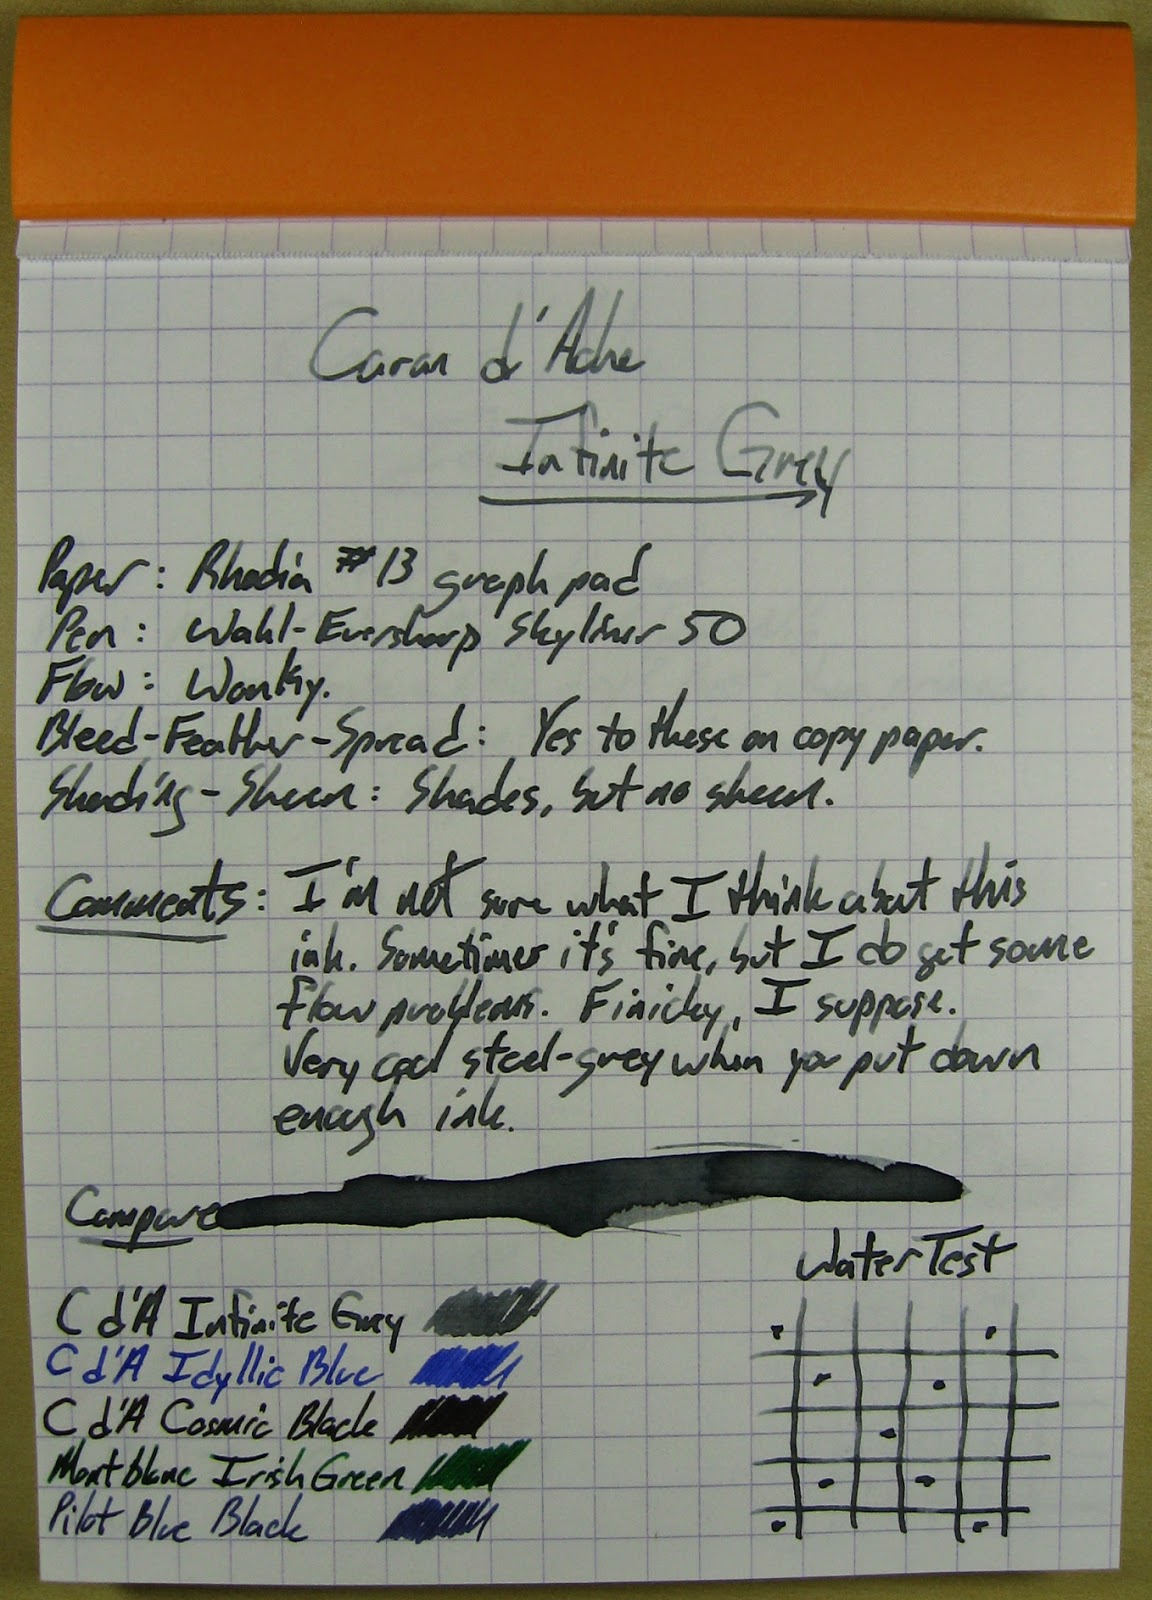 Caran d'Ache
Infinite Grey
Paper: Rhodia #13 graph pad
Pen: Wahl-Eversharp Skyliner 50
Flow: Wonky.
Bleed-Feather-Spread: Yes to these on copy paper.
Shading-Sheen: Shades, but no sheen.
Comments: I'm not sure what I think about this
ink. Sometimes it's fine, but I do get some
flow problems. Finicky, I suppose.
Very cool steel-grey when you put down
enough ink.
Compare
Water Test
C d'A Infinite Grey
C d'A Idyllic Blue
C d'A Cosmic Black
Montblanc Irish Green
Pilot Blue Black